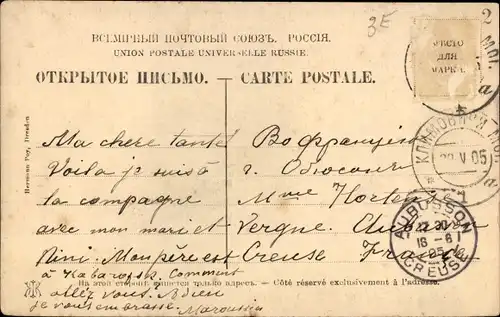 3E
ВСЕМІРНЫЙ ПОЧТОВЫЙ СОЮЗЪ. РОССІЯ.
UNION POSTALE UNIVERSELLE RUSSIE.
ОТКРЫТОЕ ПИСЬМО. — CARTE POSTALE.
МѢСТО
ДЛЯ
МАРКИ.
Hermann Poy, Dresden
Ma chere tante!
Voila je suis à
la compagne
avec mon mari et
Nini. Mon père est
à Kabarovsk. Comment
allez vous. Adieu
je vous embrasse.
Maroussia
Во Францiю
г. Обюсонъ
Mme Hortense
Vergne. Aubusson
Creuse France
AUBUSSON
CREUSE
На этой сторонѣ пишется только адресъ. — Côté réservé exclusivement à l'adresse.